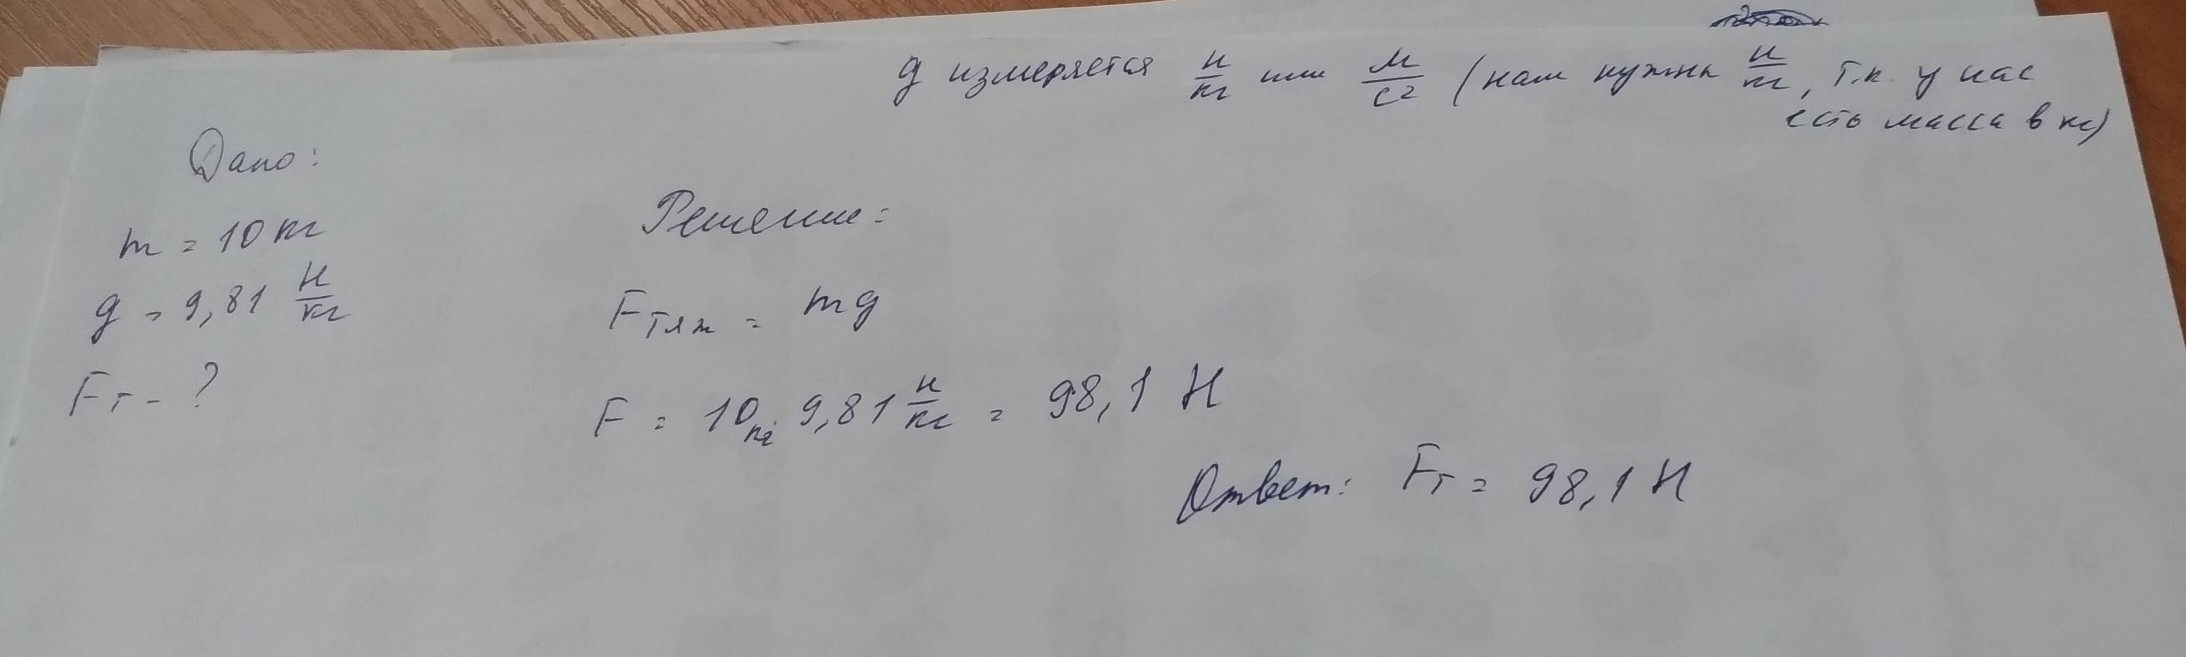 g измеряется н/кг или м/с² (нам нужны н/кг, т.к. у нас
есть масса в кг)
Дано:
m = 10 кг
g = 9,81 Н/кг
Fт - ?
Решение:
Fтяж = mg
F = 10 кг · 9,81 н/кг = 98,1 Н
Ответ: Fт = 98,1 Н